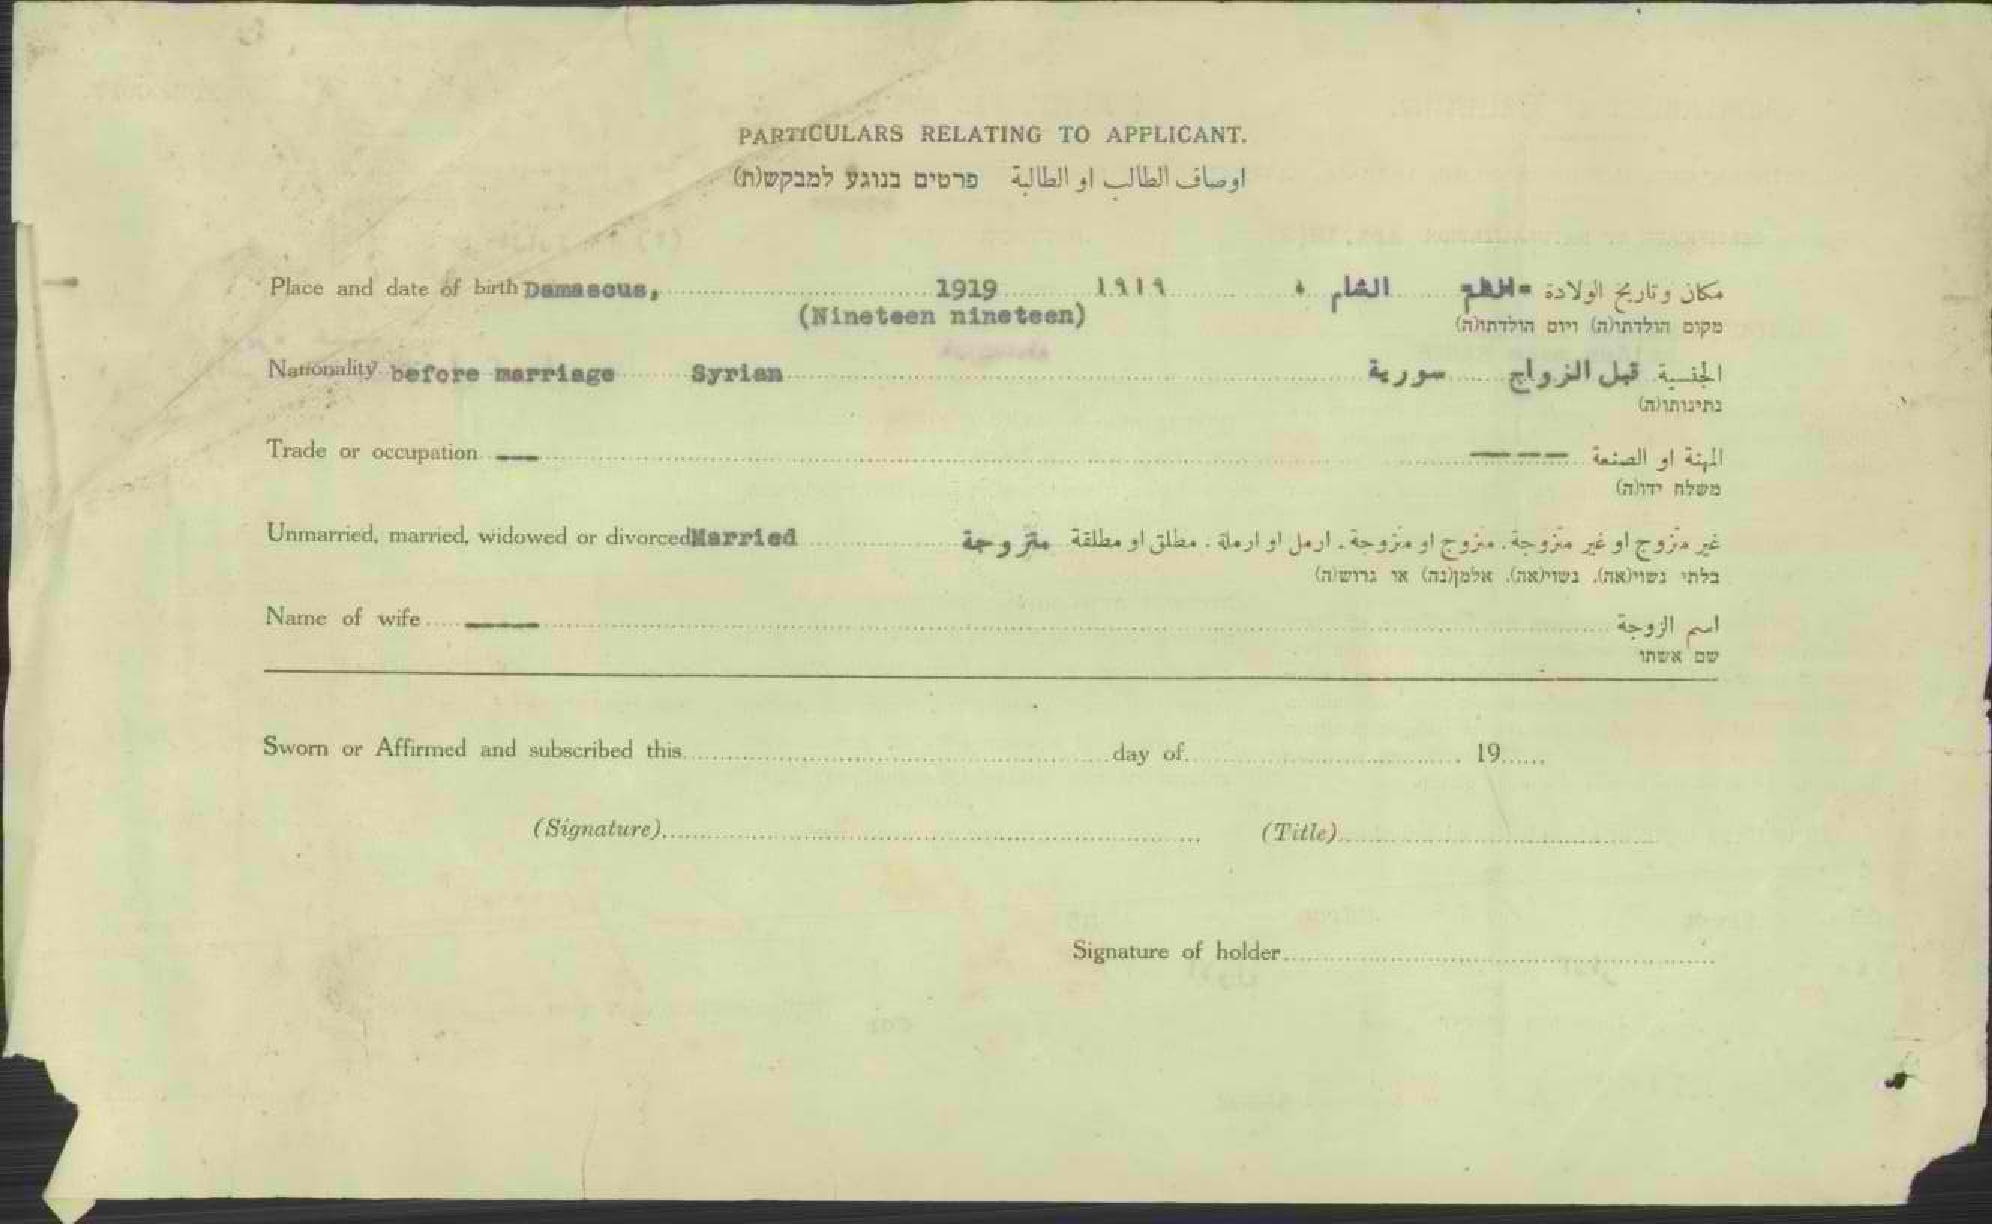 PARTICULARS RELATING TO APPLICANT.
اوصاف الطالب او الطالبة פרטים בנוגע למבקש(ת)
Place and date of birth Damascus, 1919 ١٩١٩ الشام مكان وتاريخ الولادة
(Nineteen nineteen) מקום הולדתו(ה) ויום הולדתו(ה)
Nationality before marriage Syrian سورية قبل الزواج الجنسية
נתינותו(ה)
Trade or occupation المهنة او الصنعة
משלח ידו(ה)
Unmarried, married, widowed or divorced Married متزوجة غير متزوج او غير متزوجة. متزوج او متزوجة. ارمل او ارملة. مطلق او مطلقة
בלתי נשוי(אה), נשוי(אה), אלמן(נה) או גרוש(ה)
Name of wife اسم الزوجة
שם אשתו
Sworn or Affirmed and subscribed this day of 19
(Signature) (Title)
Signature of holder